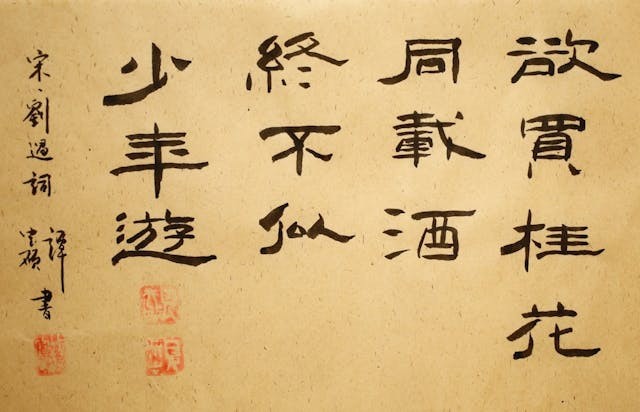 欲買桂花
同載酒
終不似
少年遊
宋、劉過詞
譚 碩書